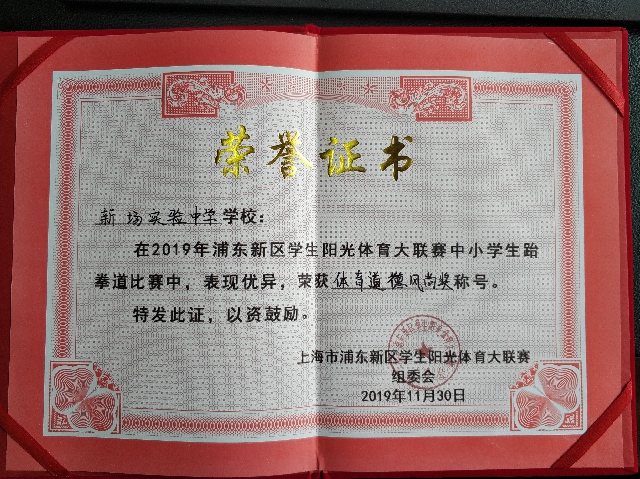 荣誉证书
新场实验中学学校：
在2019年浦东新区学生阳光体育大联赛中小学生跆
拳道比赛中，表现优异，荣获体育道德风尚奖称号。
特发此证，以资鼓励。
上海市浦东新区学生阳光体育大联赛
组委会
2019年11月30日